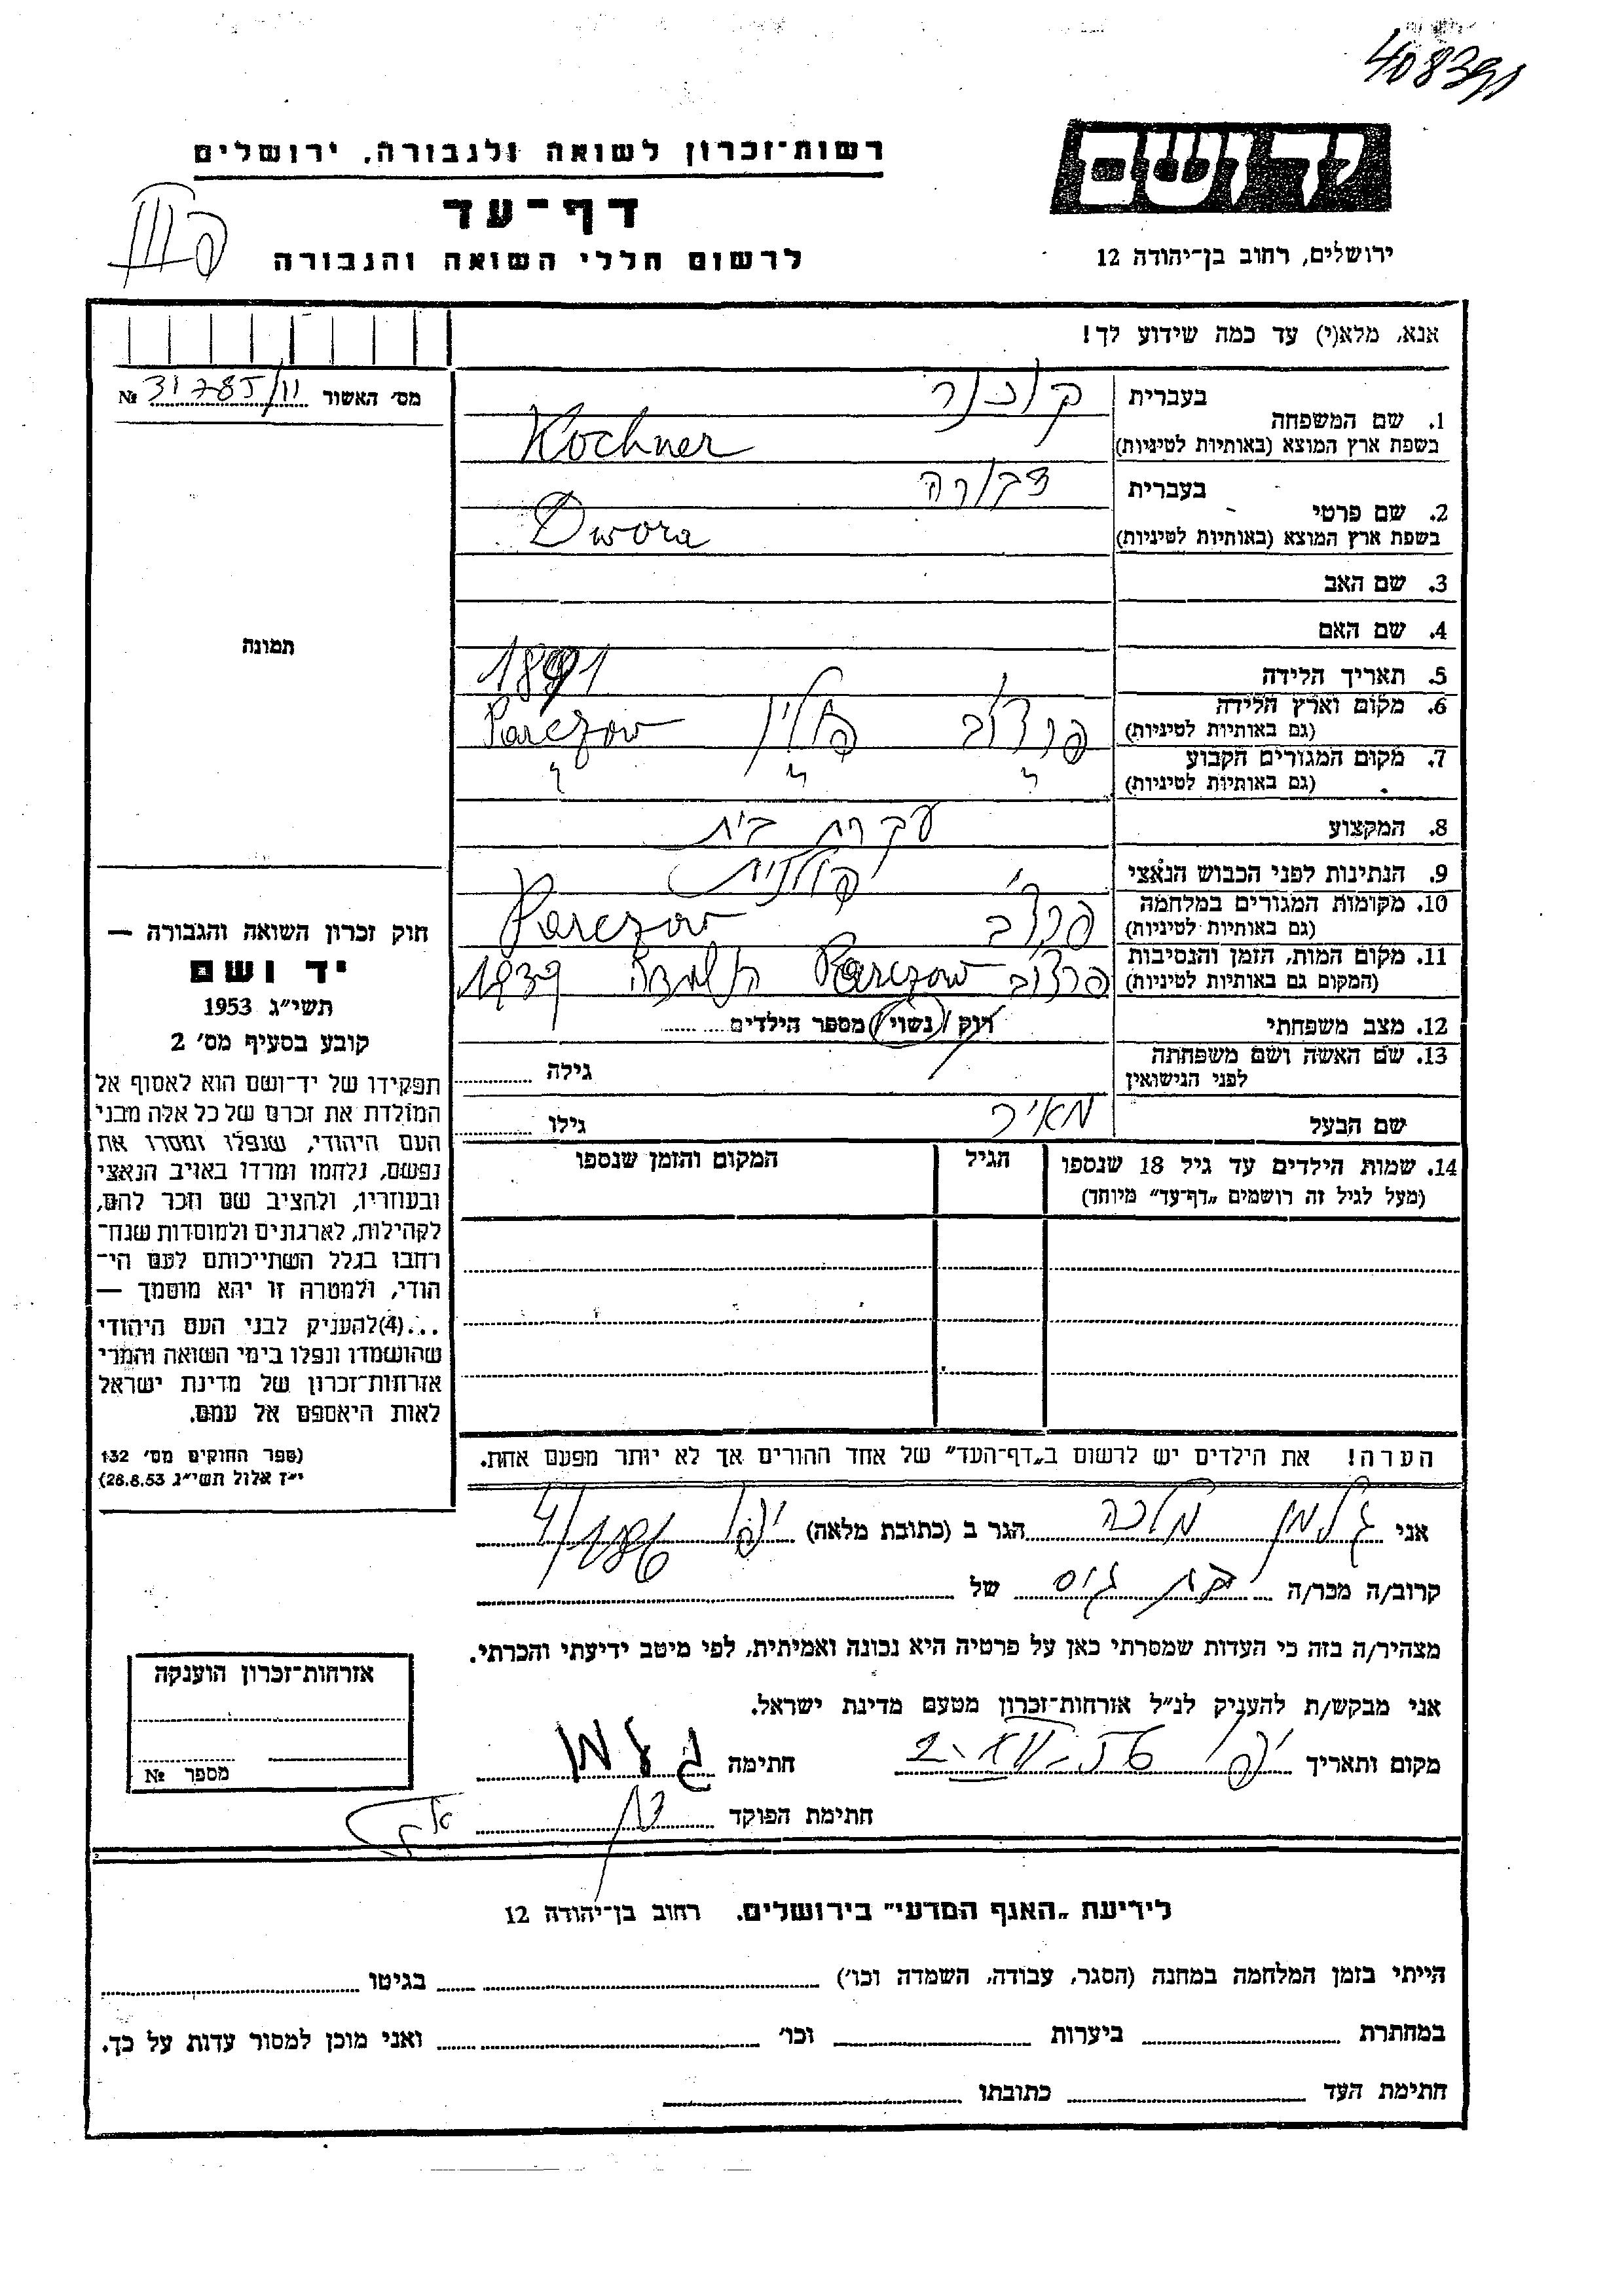 408391
יד ושם
ירושלים, רחוב בן־יהודה 12
רשות־זכרון לשואה ולגבורה, ירושלים
דף־עד
לרשום חללי השואה והגבורה
אנא, מלא(י) עד כמה שידוע לך!
מס׳ האשור 31785/11 №
1. שם המשפחה בעברית קוכנר
בשפת ארץ המוצא (באותיות לטיניות) Kochner
2. שם פרטי בעברית דבורה
בשפת ארץ המוצא (באותיות לטיניות) Dwora
3. שם האב
4. שם האם
5. תאריך הלידה 1891
6. מקום וארץ הלידה פרצ'וב פולין Parczow
(גם באותיות לטיניות)
7. מקום המגורים הקבוע
(גם באותיות לטיניות) " " "
8. המקצוע עקרת בית
9. הנתינות לפני הכבוש הנאצי פולנית
10. מקומות המגורים במלחמה פרצ'וב Parczow
(גם באותיות לטיניות)
11. מקום המות, הזמן והנסיבות פרצוב Parczow השמדה 1939
(המקום גם באותיות לטיניות)
12. מצב משפחתי רוק / נשוי / מספר הילדים
13. שם האשה ושם משפחתה גילה
לפני הנישואין
שם הבעל מאיר גילו
14. שמות הילדים עד גיל 18 שנספו הגיל המקום והזמן שנספו
(מעל לגיל זה רושמים „דף־עד״ מיוחד)
הערה! את הילדים יש לרשום ב„דף־העד״ של אחד ההורים אך לא יותר מפעם אחת.
תמונה
חוק זכרון השואה והגבורה —
יד ושם
תשי״ג 1953
קובע בסעיף מס׳ 2
תפקידו של יד־ושם הוא לאסוף אל
המולדת את זכרם של כל אלה מבני
העם היהודי, שנפלו ומסרו את
נפשם, נלחמו ומרדו באויב הנאצי
ובעוזריו, ולהציב שם וזכר להם,
לקהילות, לארגונים ולמוסדות שנח־
רחבו בגלל השתייכותם לעם הי־
הודי, ולמטרה זו יהא מוסמך —
...(4)להעניק לבני העם היהודי
שהושמדו ונפלו בימי השואה והמרי
אזרחות־זכרון של מדינת ישראל
לאות היאספם אל עמם.
(ספר החוקים מס׳ 132
י״ז אלול תשי״ג 28.8.53)
אני גלמן מלכה הגר ב (כתובת מלאה) יפו
קרוב/ה מכר/ה בת גיס של
מצהיר/ה בזה כי העדות שמסרתי כאן על פרטיה היא נכונה ואמיתית, לפי מיטב ידיעתי והכרתי.
אני מבקש/ת להעניק לנ״ל אזרחות־זכרון מטעם מדינת ישראל.
מקום ותאריך יפו חתימה גלמן
חתימת הפוקד
אזרחות־זכרון הוענקה
מספר №
לידיעת „האגף המדעי״ בירושלים. רחוב בן־יהודה 12
הייתי בזמן המלחמה במחנה (הסגר, עבודה, השמדה וכו׳) בגיטו
במחתרת ביערות וכו׳ ואני מוכן למסור עדות על כך.
חתימת העד כתובתו